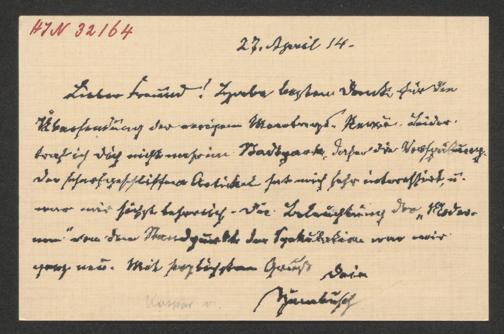 HIN 32164
27. April 14.
Lieber Freund! Habe besten Dank für die
Übersendung der vorigen Montags-Revue. Leider
traf ich Dich nicht mehr im Stadtpark, daher die Verspätung.
Der scharfgeschliffene Artikel hat mich sehr interessirt, u.
war mir höchst lehrreich. Die Beleuchtung der „Moder-
nen“ von dem Standpunkte der Spekulation war mir
ganz neu. Mit herzlichstem Gruß
Dein
Zumbusch
Kaspar v.